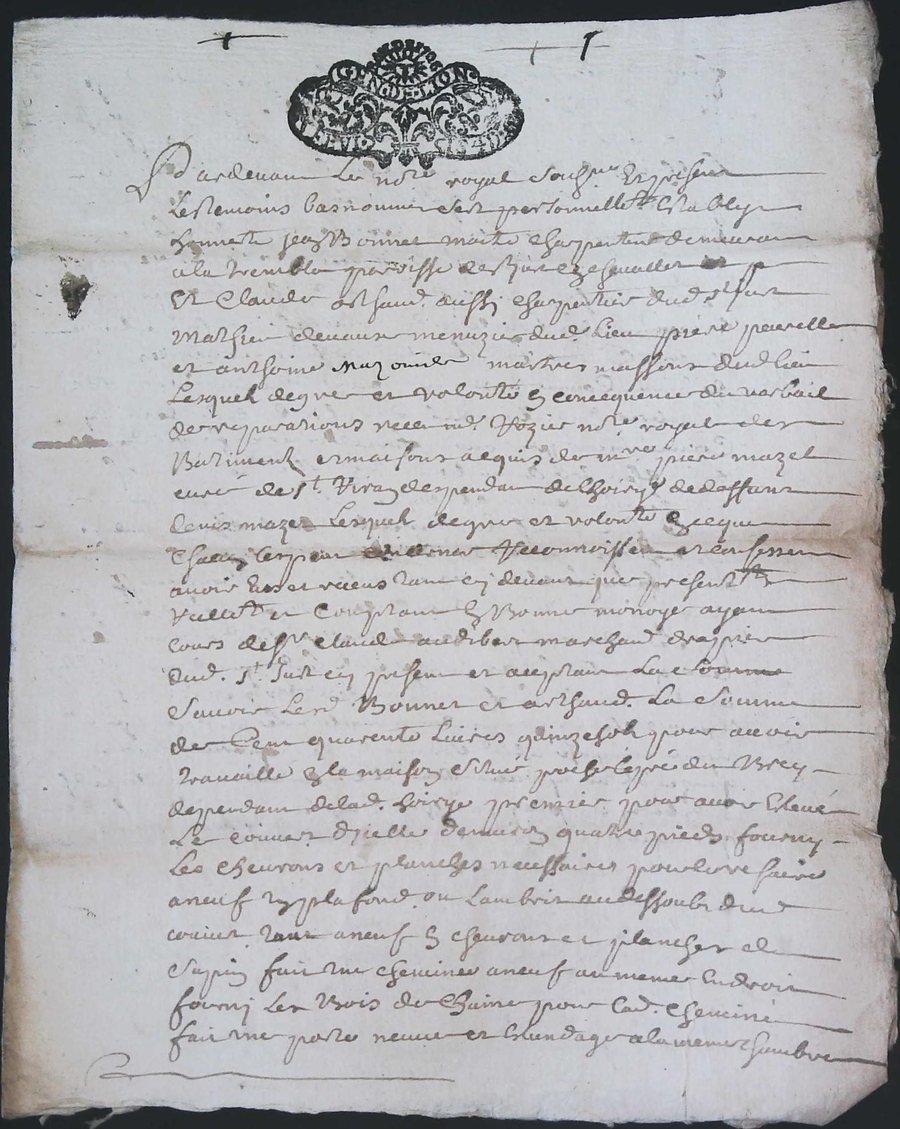 GEN DE LION
Pardevant Le no.re royal soubsigné Et presents
Les temoins bas nommes s'est personnellem.t Estably
honneste Jean Bonnet maitre Charpentier demeurant
a la tremble paroisse de St Just En chevallet
Et Claude Arthaud aussy Charpentier dud. St Just
Mathieu menuzier dud. Lieu piere
et anthoine Mazoirier maitres massons dud. lieu
Lesquels de gré et volonté En consequence du verbail
de reparations receu no.re royal des
Batiments et maisons acquis de m.re piere mazet
curé de St. despendant de lhoirye de deffunt
denis mazet Lesquels de gré et volonté
Chacun Les concerne Reconnoissent et confessent
avoir Eus et receus tant cy devant que presentem.t
reellem.t et Comptant En Bonne monoye ayant
cours de Sr Claude audibert marchand drapier
dud. St. Just cy present et aceptant La somme
Scavoir Led. Bonnet et arthaud. La Somme
de Cent quarente Livres quinze sols pour avoir
travaillé En la maison Situé
despendant de lad. hoirye premier pour avoir Eleué
Le couvert d'jcelle denviron quatre pieds, fourny
Les cheurons et planches necessaires pour
a neuf un plafond ou Lambrit au dessoubs dud.
couvert tout a neuf En cheurons et planches de
Sapin fait une cheminée a neuf au meme Endroit
fourny Les Bois de Chaine pour lad. Cheminée
fait une porte neuve et a la meme chambre